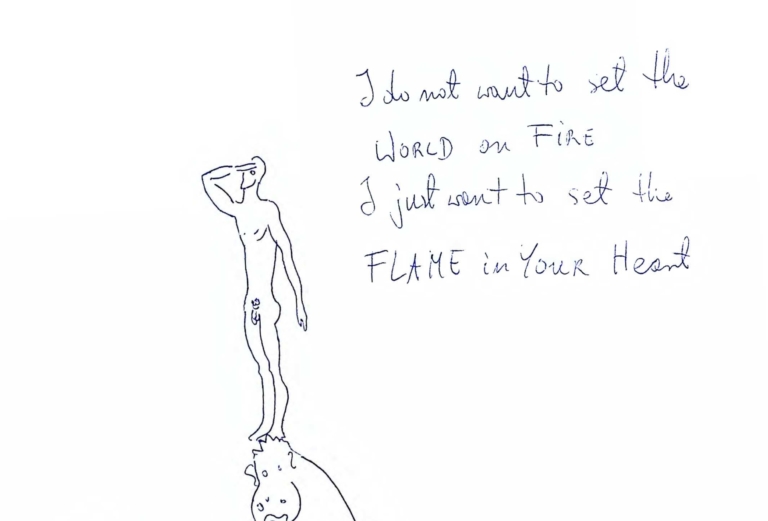 I do not want to set the
WORLD on FIRE
I just want to set the
FLAME in YOUR Heart